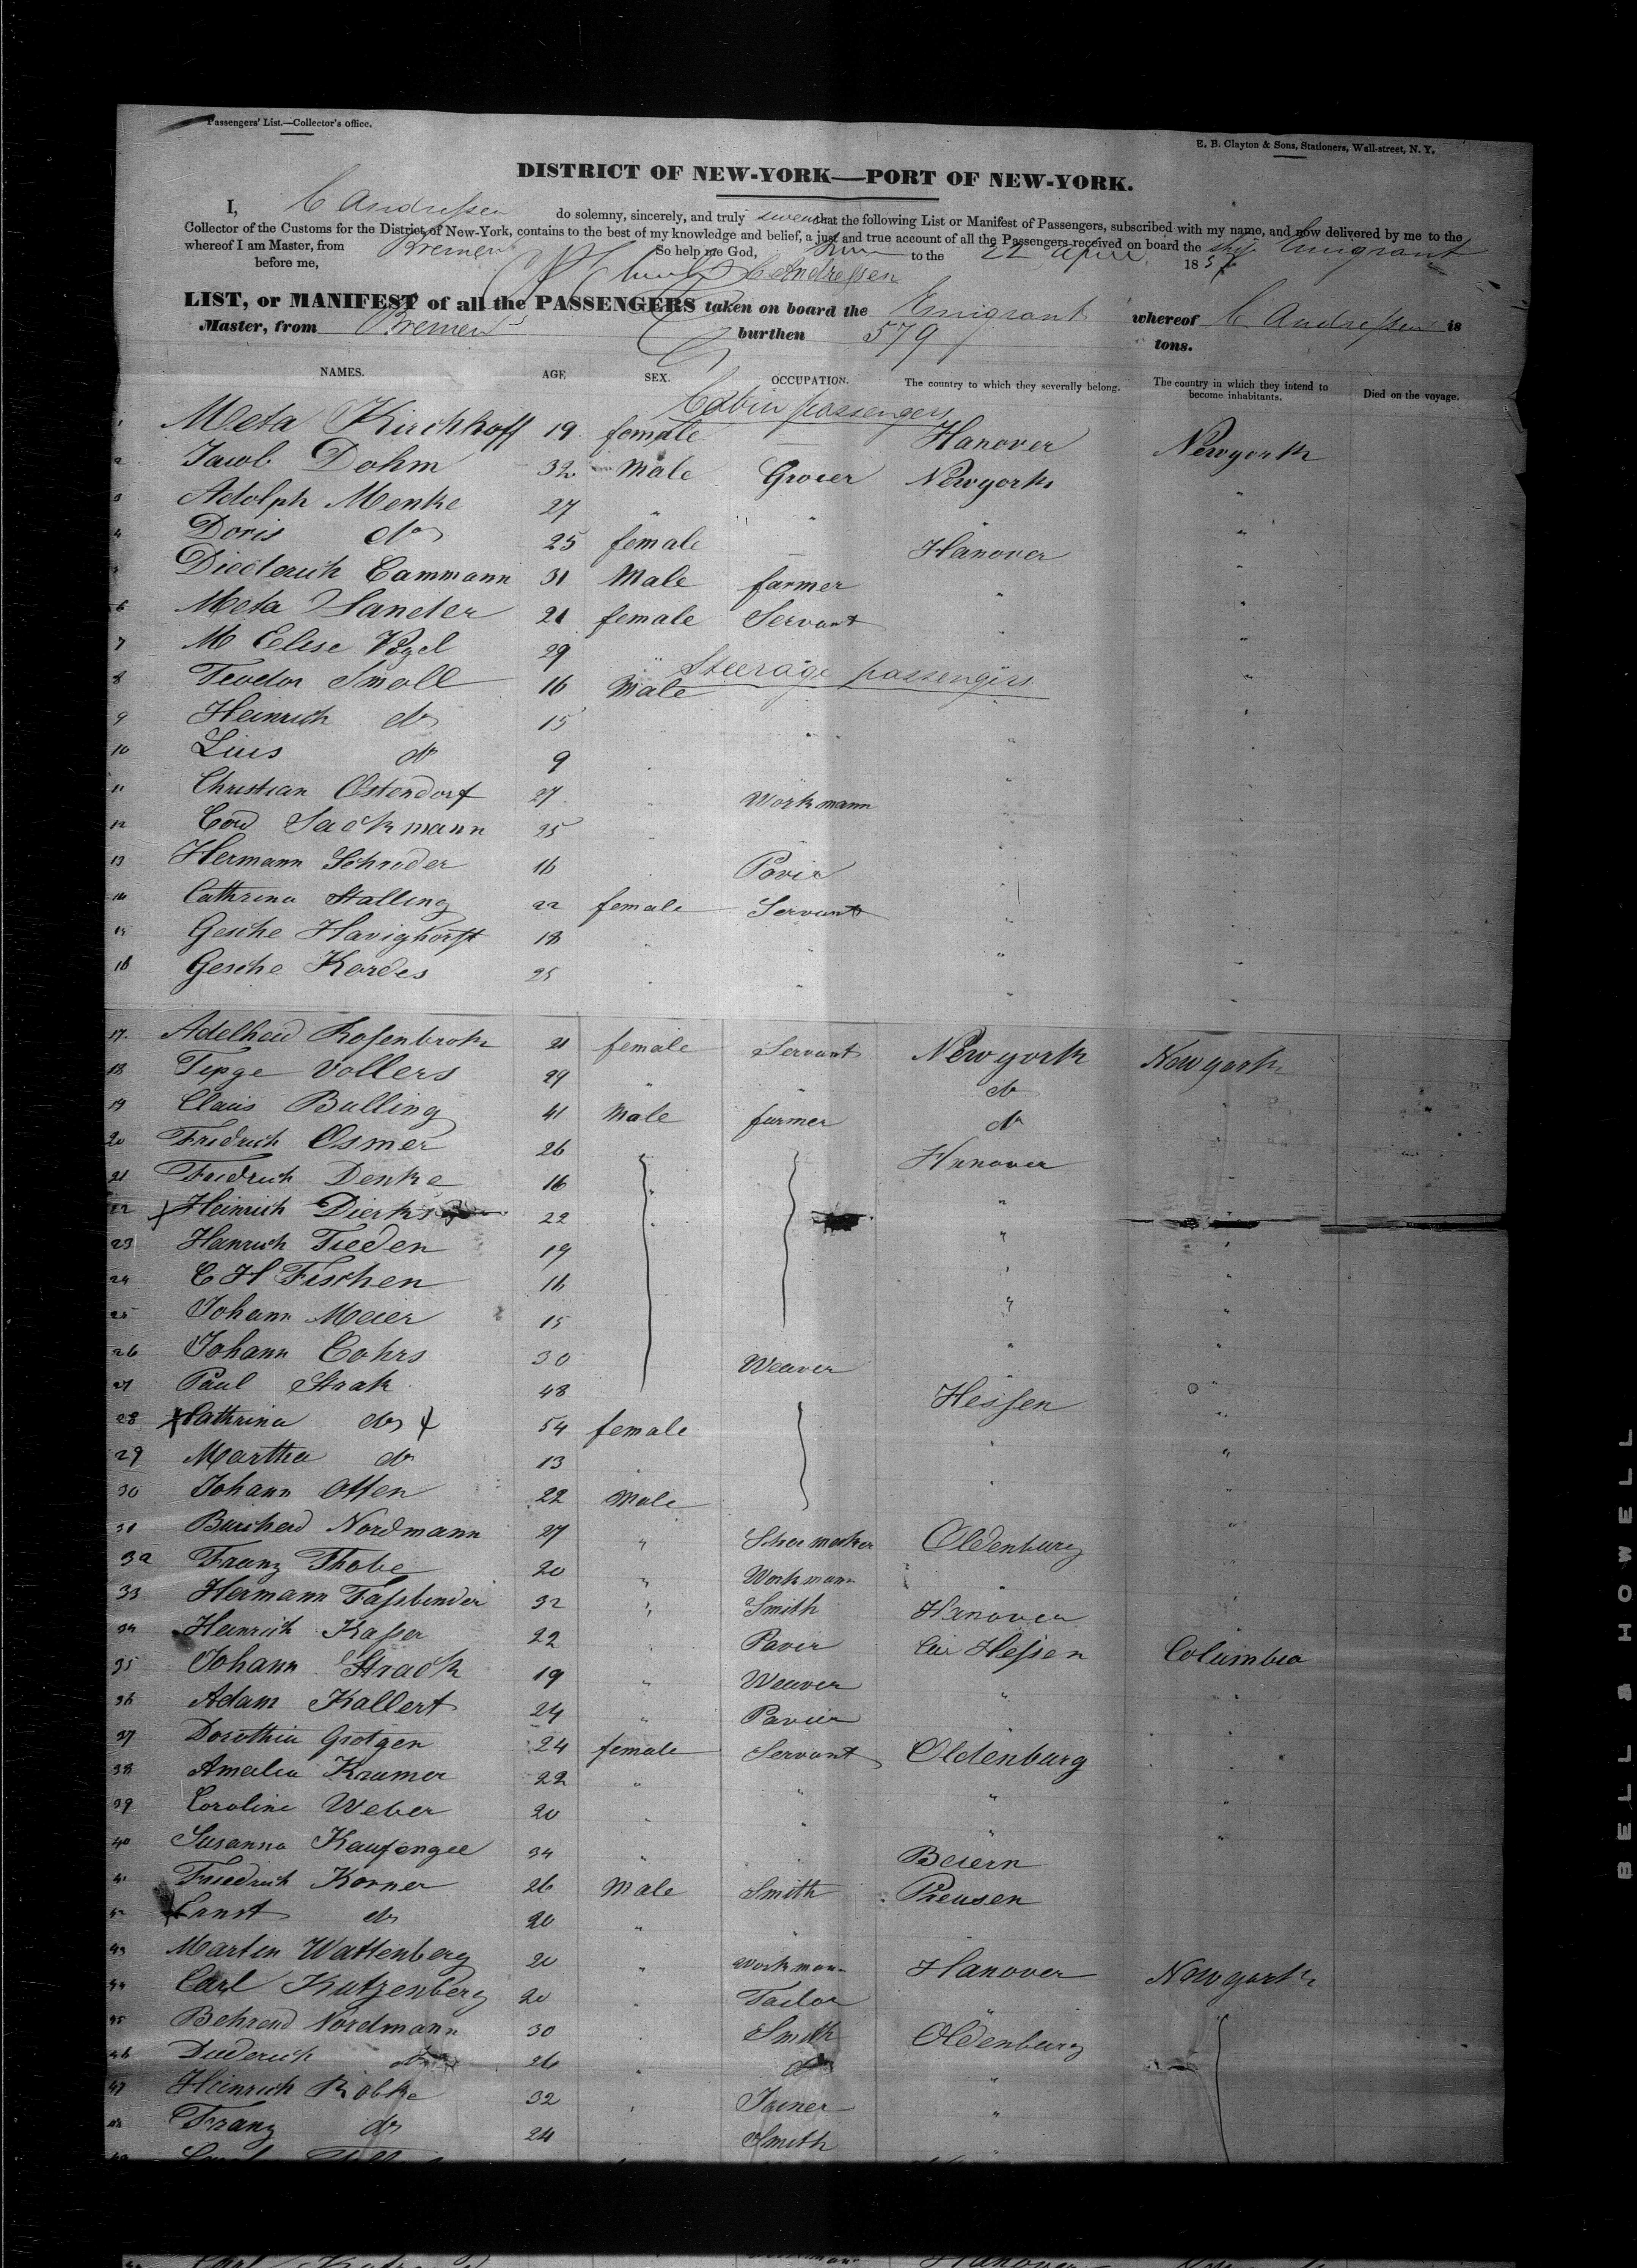 Passengers' List.—Collector's office.
E. B. Clayton & Sons, Stationers, Wall-street, N. Y.
DISTRICT OF NEW-YORK—PORT OF NEW-YORK.
I, C Andressen do solemny, sincerely, and truly swear that the following List or Manifest of Passengers, subscribed with my name, and now delivered by me to the
Collector of the Customs for the District of New-York, contains to the best of my knowledge and belief, a just and true account of all the Passengers received on board the ship Emigrant
whereof I am Master, from Bremen So help me God, to the 22 April 185
before me, C Andressen
LIST, or MANIFEST of all the PASSENGERS taken on board the Emigrant whereof C Andressen is
Master, from Bremen burthen 579 tons.
NAMES. AGE. SEX. OCCUPATION. The country to which they severally belong. The country in which they intend to become inhabitants. Died on the voyage.
Cabin passengers
1 Meta Kirchhoff 19 female — Hanover Newyork
2 Jacob Dohm 32 Male Grocer Newyork "
3 Adolph Menke 27 " " "
4 Doris do 25 female — Hanover "
5 Diederich Cammann 31 Male farmer " "
6 Meta Sander 21 female Servant " "
7 M Elise Vogel 29 "
Steerage passengers
8 Teodor Smoll 16 Male "
9 Heinrich do 15 " " "
10 Luis do 9 " " "
11 Christian Ostendorf 27 " Workmann "
12 Cord Sackmann 25 " "
13 Hermann Schroder 16 " Pavir "
14 Cathrina Stalling 22 female Servant " "
15 Gesche Havighorst 18 " " " "
16 Gesche Kordes 25 " " " "
17. Adelheid Rosenbrock 21 female Servant Newyork Newyork
18 Vollers 29 " " do "
19 Claus Bulling 41 Male farmer do "
20 Fredrich Osmer 26 Hanover "
21 Fredrich Denke 16 " "
22 Heinrich Dierks 22 "
23 Hanrich Tieden 19 " "
24 C H Fischen 16 " "
25 Johann Meier 15 " "
26 Johann Cohrs 30 Weaver " "
27 Paul Strak 48 Hessen "
28 Cathrina do 54 female "
29 Martha do 13 " " "
30 Johann Otten 22 Male " "
31 Burcherd Nordmann 27 " Shoemaker Oldenburg "
32 Franz Thobe 20 " Workmann "
33 Hermann Fassbender 32 " Smith Hanover "
34 Heinrich Kasser 22 " Pavir Hessen Columbia
35 Johann Strack 19 " Weaver " "
36 Adam Kallert 24 " Pavier " "
37 Dorothia Grotgen 24 female Servant Oldenburg "
38 Amalia Kramer 22 " " " "
39 Caroline Weber 20 " " " "
40 Susanna Kaufongel 34 " " Beiern
41 Friedrich Korner 26 Male Smith Preusen
42 Ernst do 20 " "
43 Marten Wattenberg 20 " Workmann Hanover Newyork
44 Carl Katzenberg 20 " Tailor "
45 Behrend Nordmann 30 " Smith Oldenburg
46 Diederich do 26 " do "
47 Heinrich Robke 32 " Joiner "
48 Franz do 24 " Smith "
BELL & HOWELL